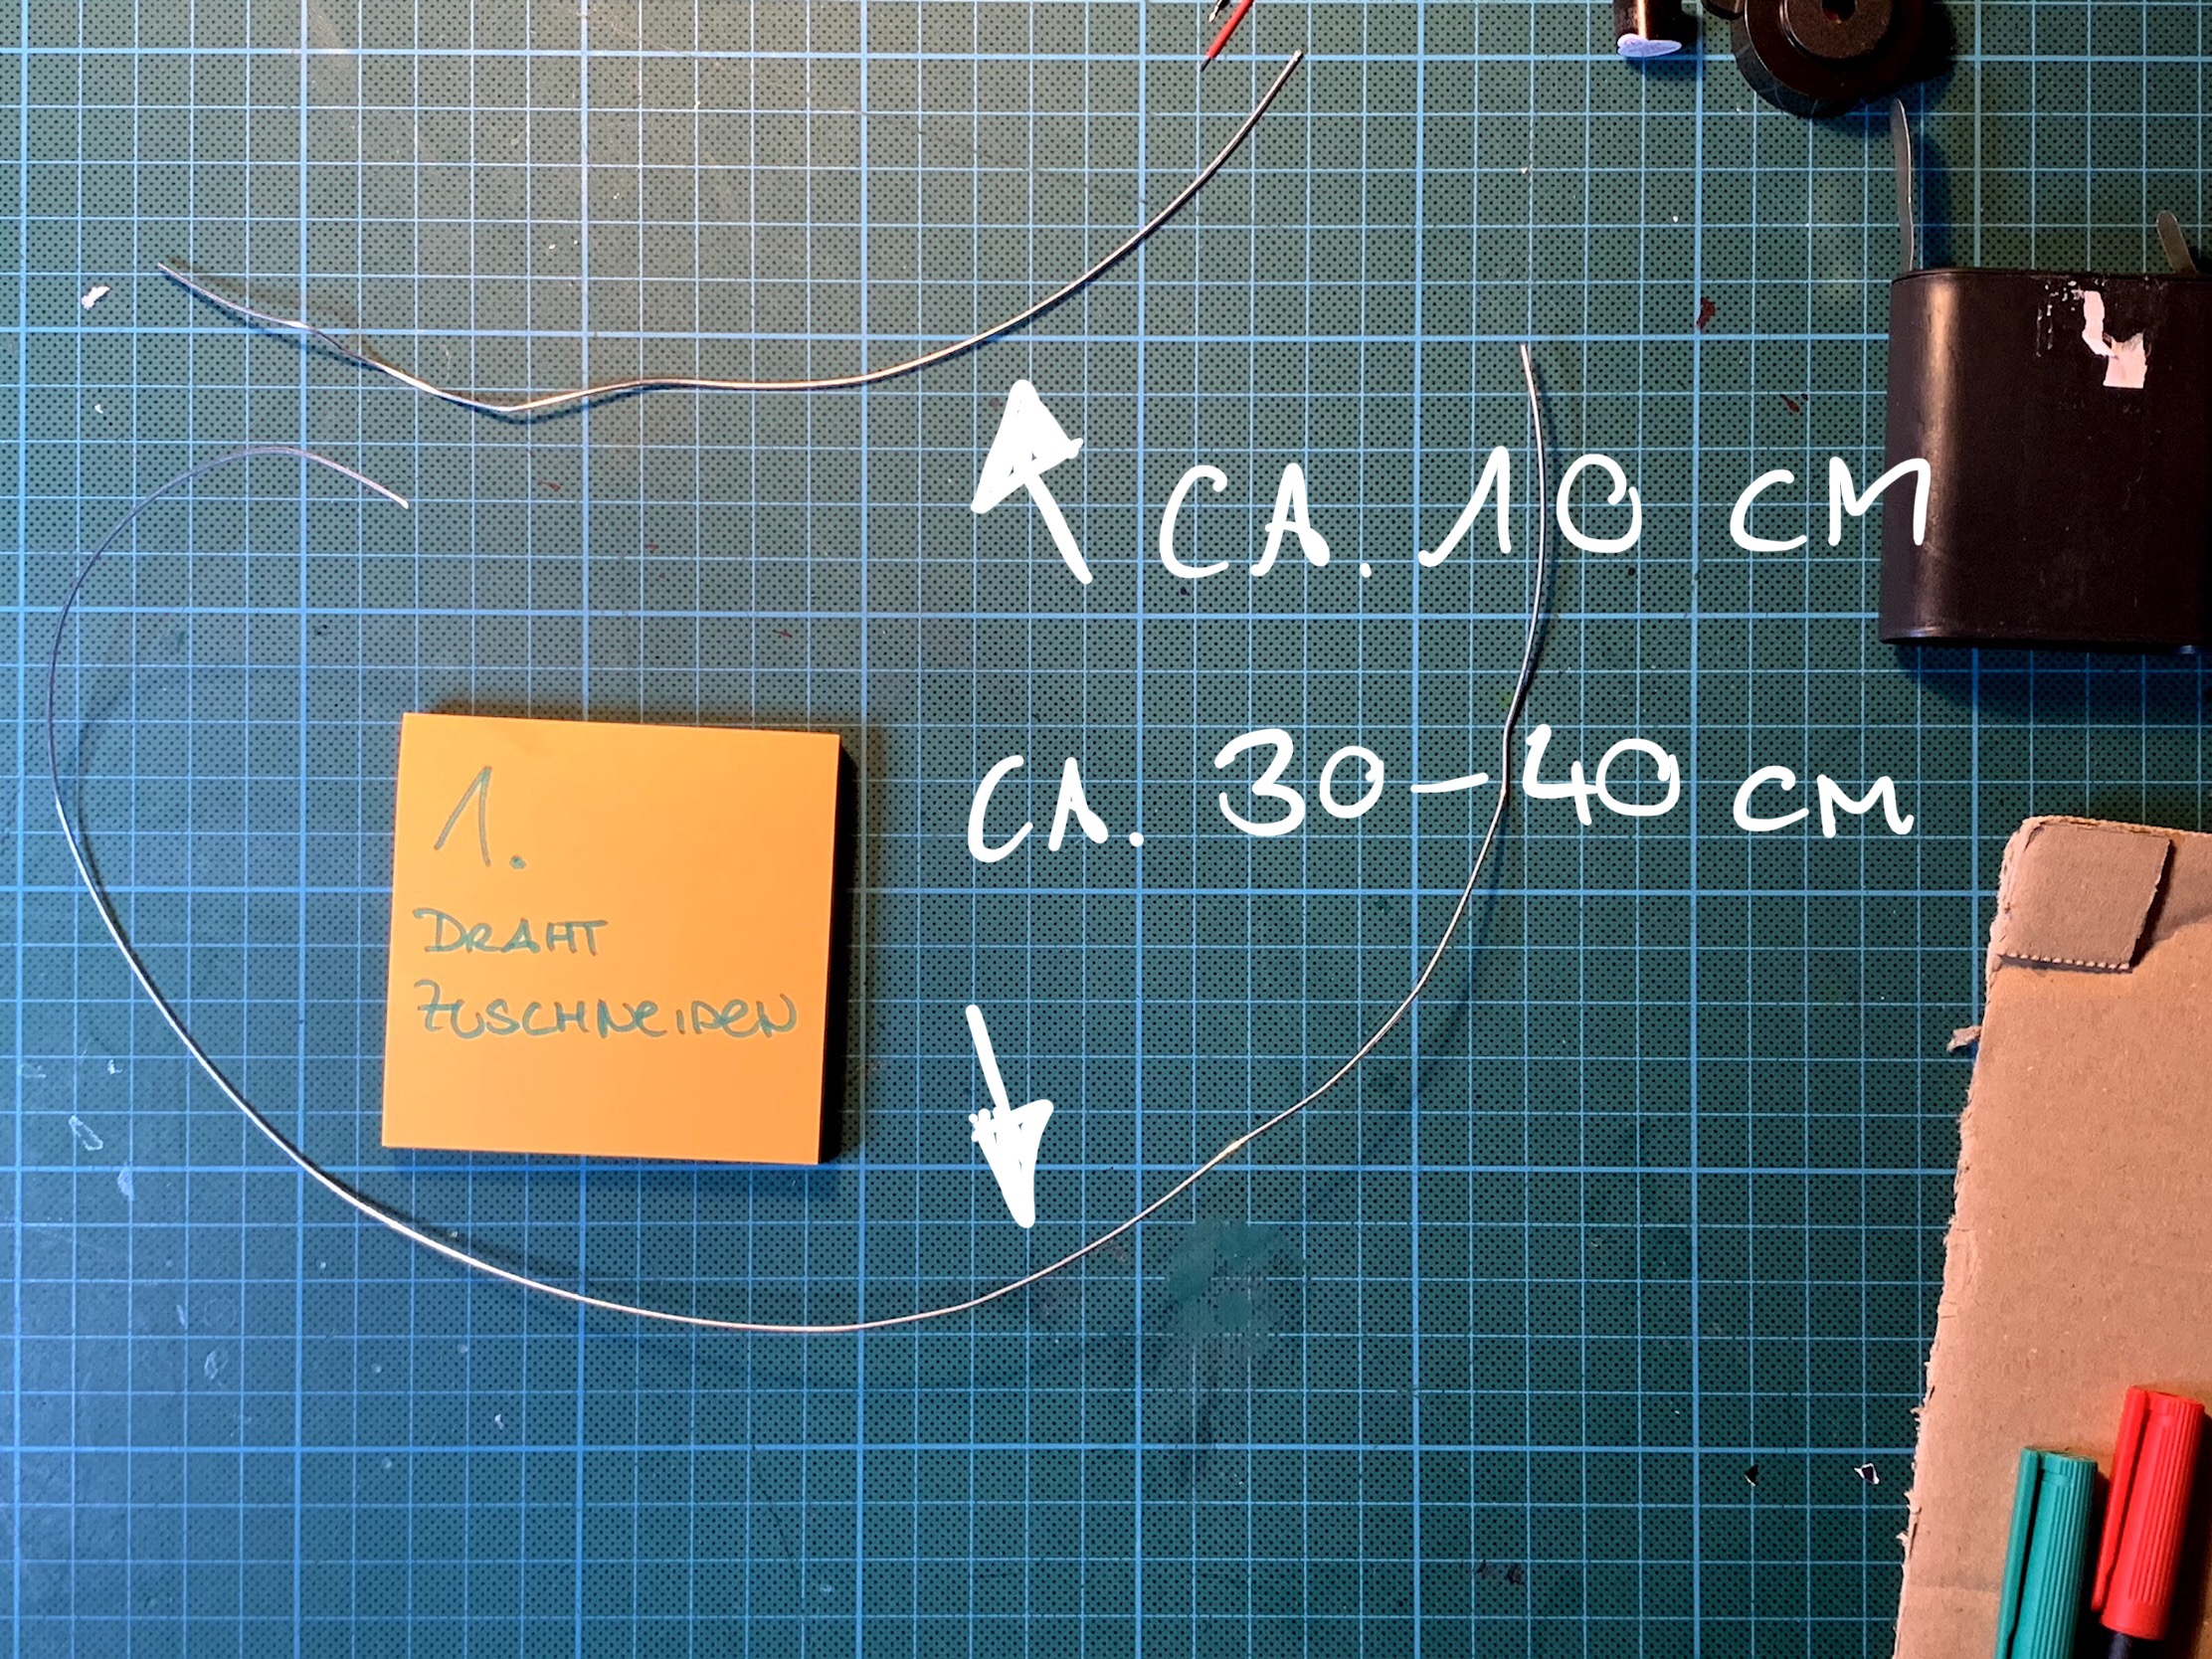 CA. 10 CM
CA. 30-40 CM
1.
DRAHT
ZUSCHNEIDEN